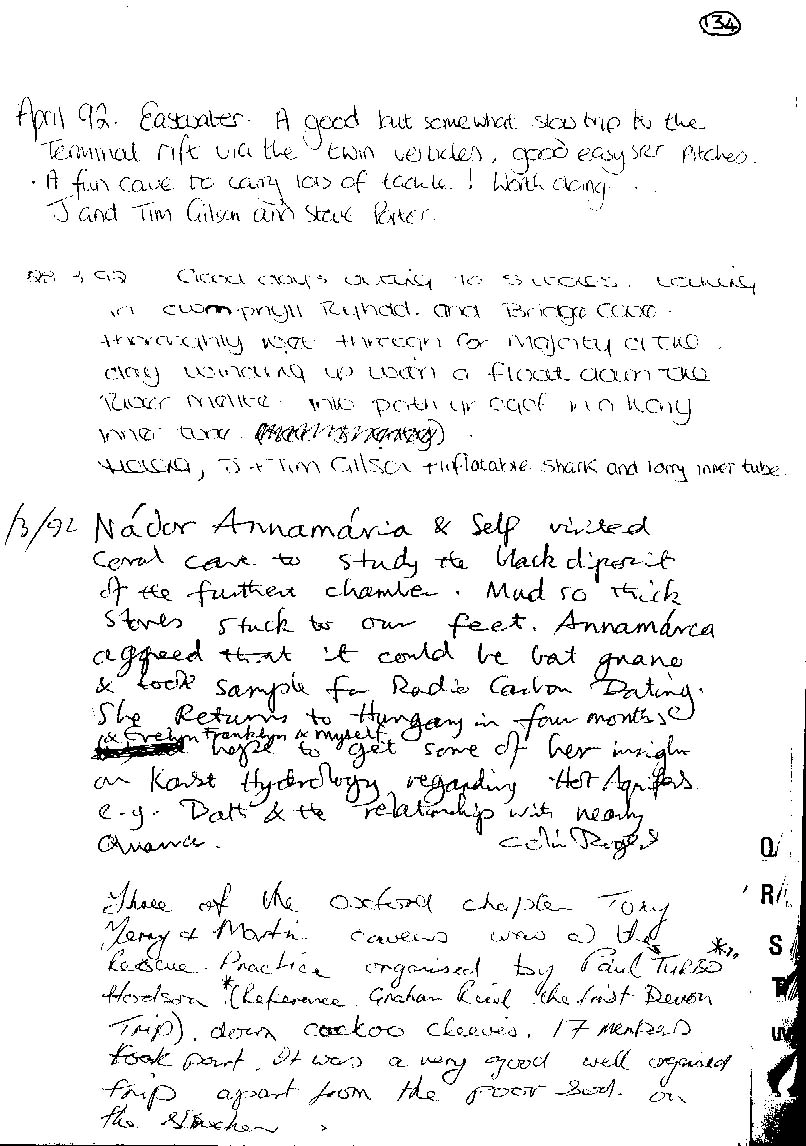 134
April 92. Eastwater. A good but somewhat slow trip to the
Terminal rift via the twin verticles, good easy SRT pitches.
A fun cave to carry lots of tackle! Worth doing. . .
J and Tim Gilson and Steve Porter.
92 Good days outing to S Wales.
in cwm pnyll Ryhdd. and Bridge cave.
thoroughly wet through for Majority of the
day winding up with a float down the
River Mellte. into porth yr ogof in a lorry
inner tube.
J + Tim Gilson + inflatable shark and lorry inner tube.
/3/92 Nádor Annamária & Self visited
Coral cave to study the black diposit
of the furthere chamber. Mud so thick
stones stuck to our feet. Annamárea
agreed that it could be bat guano
& took sample for Radio Carbon Dating.
She Returns to Hungary in four months
& Evelyn Franklyn & myself
hope to get some of her insight
on Karst Hydrology regarding Hot Aquifers
e.g. Bath & the relationship with nearby
Colin Rogers
Three of the oxford chapter Tony
Jerry & Martin cavers was at the
Rescue Practice organised by Paul "TURBO"
Hodson * (Reference Graham the first Devon
Trip). down cockoo cleeves. 17 members
took part. It was a very good well organised
trip apart from the poor Sod. on
the stretcher.
Q
R
S
T
UV